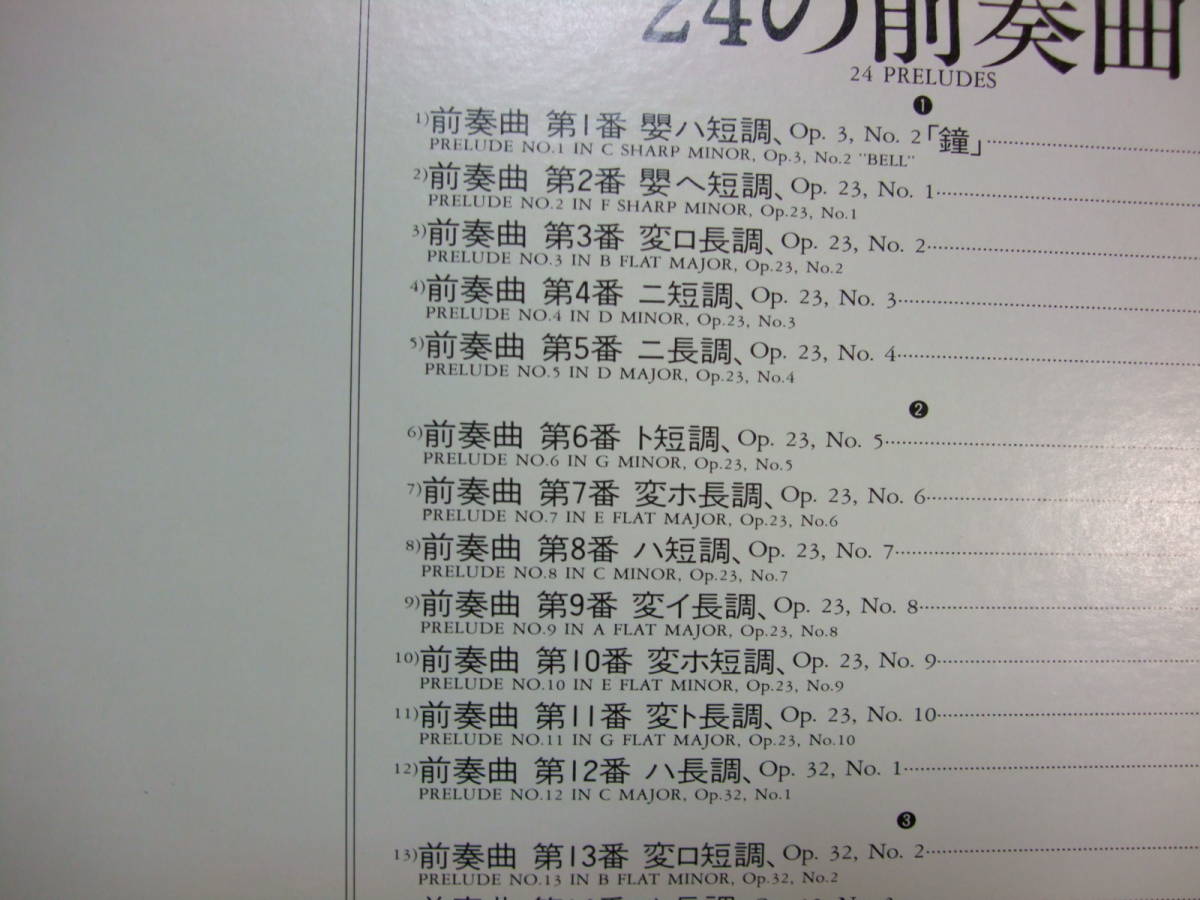 24の前奏曲
24 PRELUDES
❶
1)前奏曲 第1番 嬰ハ短調、Op. 3, No. 2「鐘」
PRELUDE NO.1 IN C SHARP MINOR, Op.3, No.2 "BELL"
2)前奏曲 第2番 嬰ヘ短調、Op. 23, No. 1
PRELUDE NO.2 IN F SHARP MINOR, Op.23, No.1
3)前奏曲 第3番 変ロ長調、Op. 23, No. 2
PRELUDE NO.3 IN B FLAT MAJOR, Op.23, No.2
4)前奏曲 第4番 ニ短調、Op. 23, No. 3
PRELUDE NO.4 IN D MINOR, Op.23, No.3
5)前奏曲 第5番 ニ長調、Op. 23, No. 4
PRELUDE NO.5 IN D MAJOR, Op.23, No.4
❷
6)前奏曲 第6番 ト短調、Op. 23, No. 5
PRELUDE NO.6 IN G MINOR, Op.23, No.5
7)前奏曲 第7番 変ホ長調、Op. 23, No. 6
PRELUDE NO.7 IN E FLAT MAJOR, Op.23, No.6
8)前奏曲 第8番 ハ短調、Op. 23, No. 7
PRELUDE NO.8 IN C MINOR, Op.23, No.7
9)前奏曲 第9番 変イ長調、Op. 23, No. 8
PRELUDE NO.9 IN A FLAT MAJOR, Op.23, No.8
10)前奏曲 第10番 変ホ短調、Op. 23, No. 9
PRELUDE NO.10 IN E FLAT MINOR, Op.23, No.9
11)前奏曲 第11番 変ト長調、Op. 23, No. 10
PRELUDE NO.11 IN G FLAT MAJOR, Op.23, No.10
12)前奏曲 第12番 ハ長調、Op. 32, No. 1
PRELUDE NO.12 IN C MAJOR, Op.32, No.1
❸
13)前奏曲 第13番 変ロ短調、Op. 32, No. 2
PRELUDE NO.13 IN B FLAT MINOR, Op.32, No.2